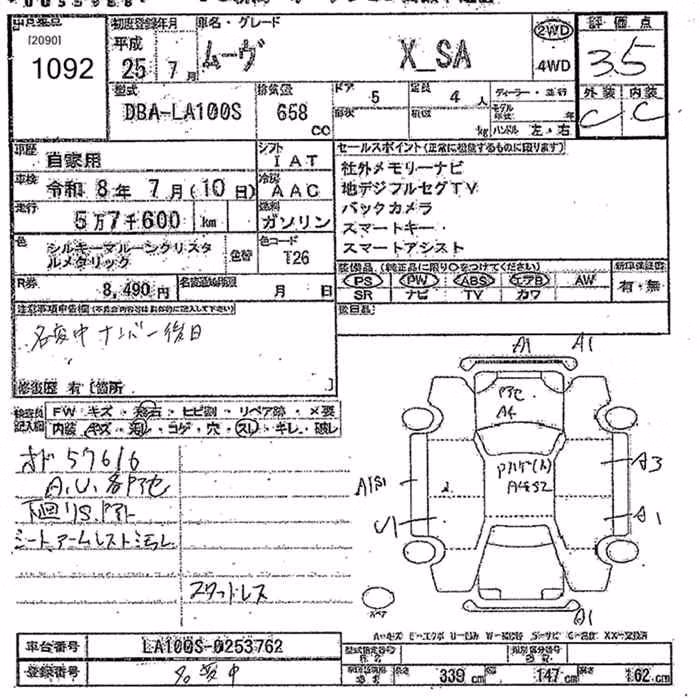 [2090]
1092
初度登録年月
平成
25年7月
車名・グレード
ムーヴ X_SA
2WD
4WD
評価点
3.5
外装 内装
C C
型式
DBA-LA100S
排気量
658
CC
ドア
5
定員
4人
ディーラー・並行
モデル年式 年
kg
ハンドル 左・右
車歴
自家用
シフト
IAT
車検
令和 8年 7月(10日)
冷房
AAC
走行
5万7千600 km
燃料
ガソリン
色
シルキーマルーンクリスタルメタリック
色替
色コード
T26
R券
8,490円
月 日
セールスポイント(正常に機能するものに限ります)
社外メモリーナビ
地デジフルセグTV
バックカメラ
スマートキー
スマートアシスト
装備品(純正品に限り○をつけてください)
PS PW ABS エアB AW
SR ナビ TV カワ
新車保証書
有・無
後日品
注意事項申告欄
名変中 ナンバー後日
修復歴 有 [箇所 ]
検査員記入欄
FW キズ・飛石・ヒビ割・リペア跡・×要
内装 キズ・汚レ・コゲ・穴・スレ・キレ・破レ
オド 57616
A,U,各アセ
下回リS.
シートアームレスト汚レ
スタッドレス
A1 A1
アセ
A4
A4S2
A3
A1
U1
A1
スペア
A=キズ E=エクボ U=凹み W=補修跡 S=サビ C=腐食 XX=交換済
車台番号
LA100S-0253762
登録番号
名変中
型式指定番号
類別区分番号
長さ 339 cm
幅 147 cm
高さ 162 cm